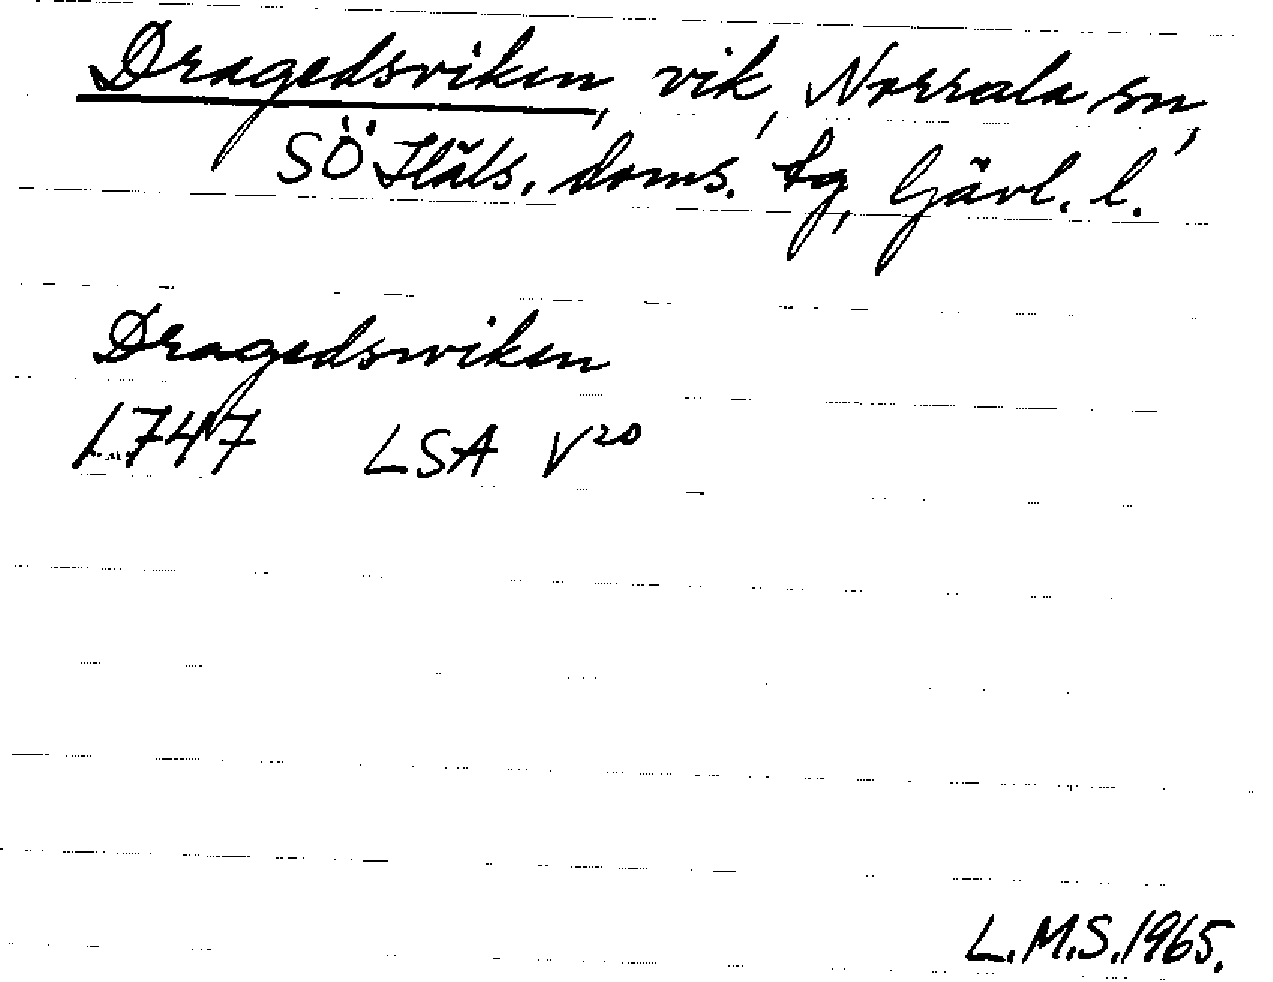 Dragedsviken, vik, Norrala sn,
SÖ Häls. doms. tg, Gävl. l.
Dragedsviken
1747 LSA V20
L.M.S. 1965.